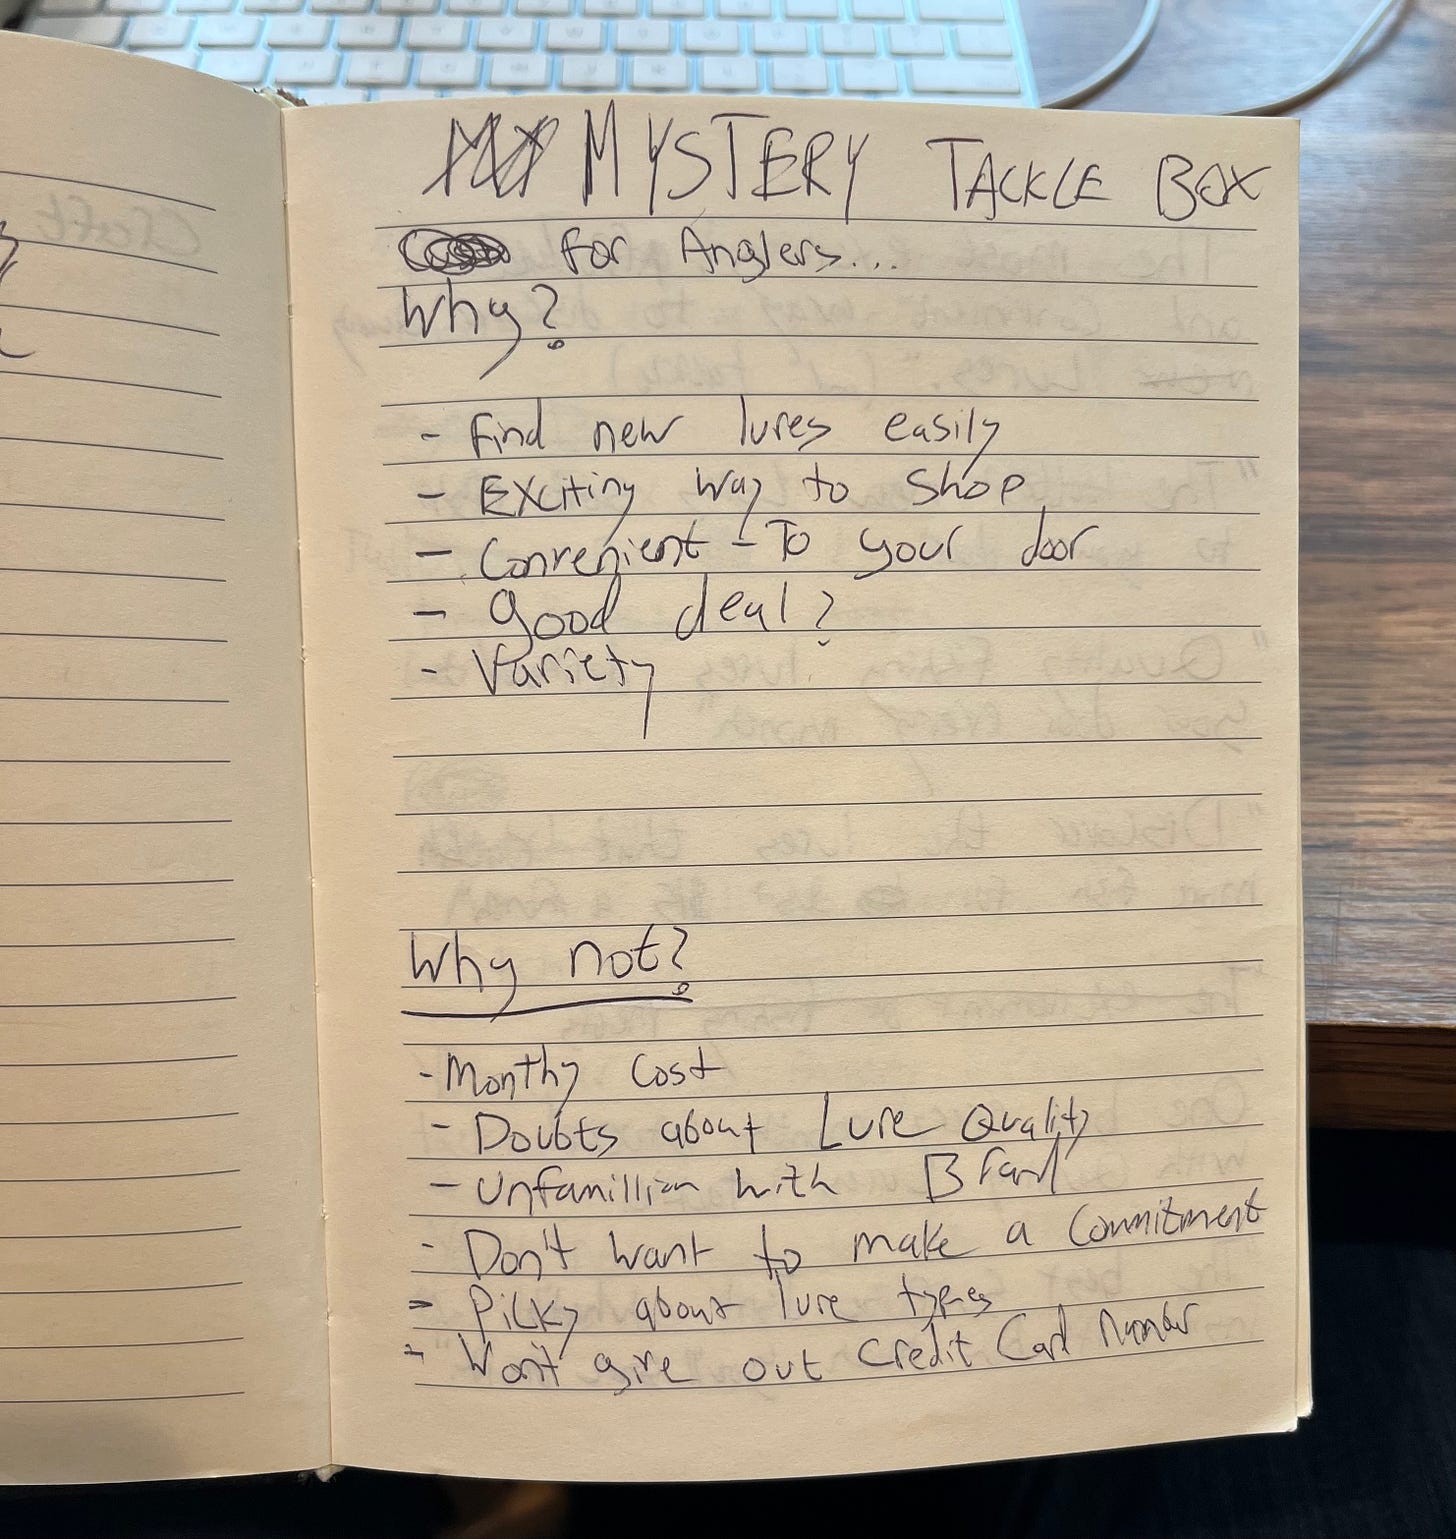 MYSTERY TACKLE BOX
for Anglers...
Why?
- Find new lures easily
- Exciting way to shop
- Convenient - To your door
- good deal?
- Variety
Why not?
- Monthy cost
- Doubts about Lure Quality
- Unfamillian with Brand
- Don't want to make a commitment
- Picky about lure types
- Won't give out Credit Card Number